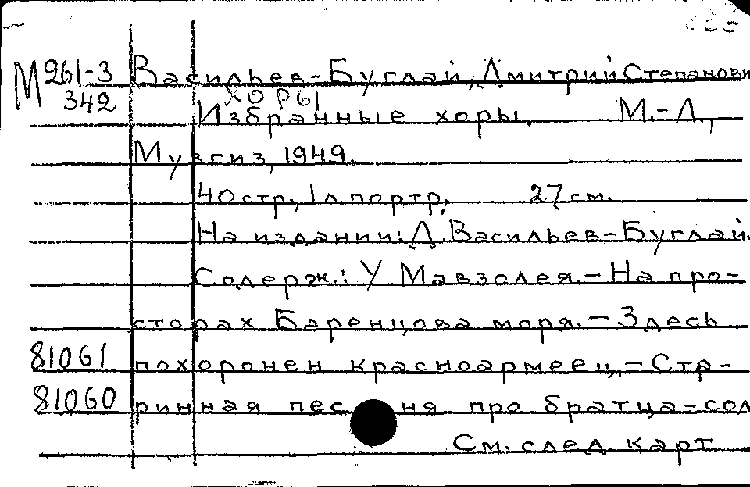 М 261-3
342
Васильев-Буглай, Дмитрий Степанови
ХОРЫ
Избранные хоры. М.-Л.,
Музгиз, 1949.
40 стр., 1 л. портр. 27 см.
На издании: Д. Васильев-Буглай.
Содерж.: У Мавзолея. - На про-
сторах Баренцова моря. - Здесь
81061 похоронен красноармеец. - Стр-
81060 ринная пес ня про братца-сол
См. след. карт